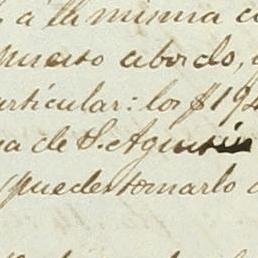 à la misma c
puesto abordo,
articular: los $ 194
a de S. Agustin
puedes tomarlo